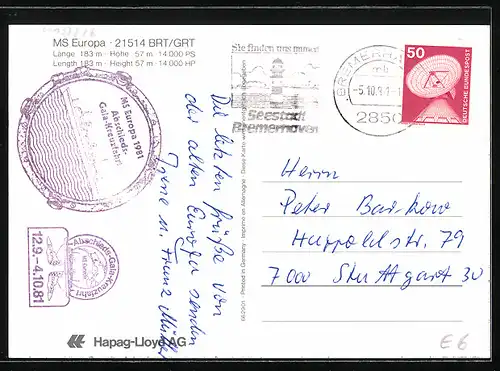 MS Europa · 21514 BRT/GRT
Länge 183 m · Höhe 57 m · 14 000 PS
Length 183 m · Height 57 m · 14 000 HP
MS Europa 1981
Abschieds-
Gala-Kreuzfahrt
12.9.-4.10.81
Abschieds-Gala-Kreuzfahrt
Die letzten Grüße von
der alten Europa senden
Irene u. Franz
Hapag-Lloyd AG
Printed in Germany
Sie finden uns
Seestadt
Bremerhaven
BREMERHA
-5.10.81-
2850
50
DEUTSCHE BUNDESPOST
Herrn
Peter Barkow
79
7000 Stuttgart 30
E6